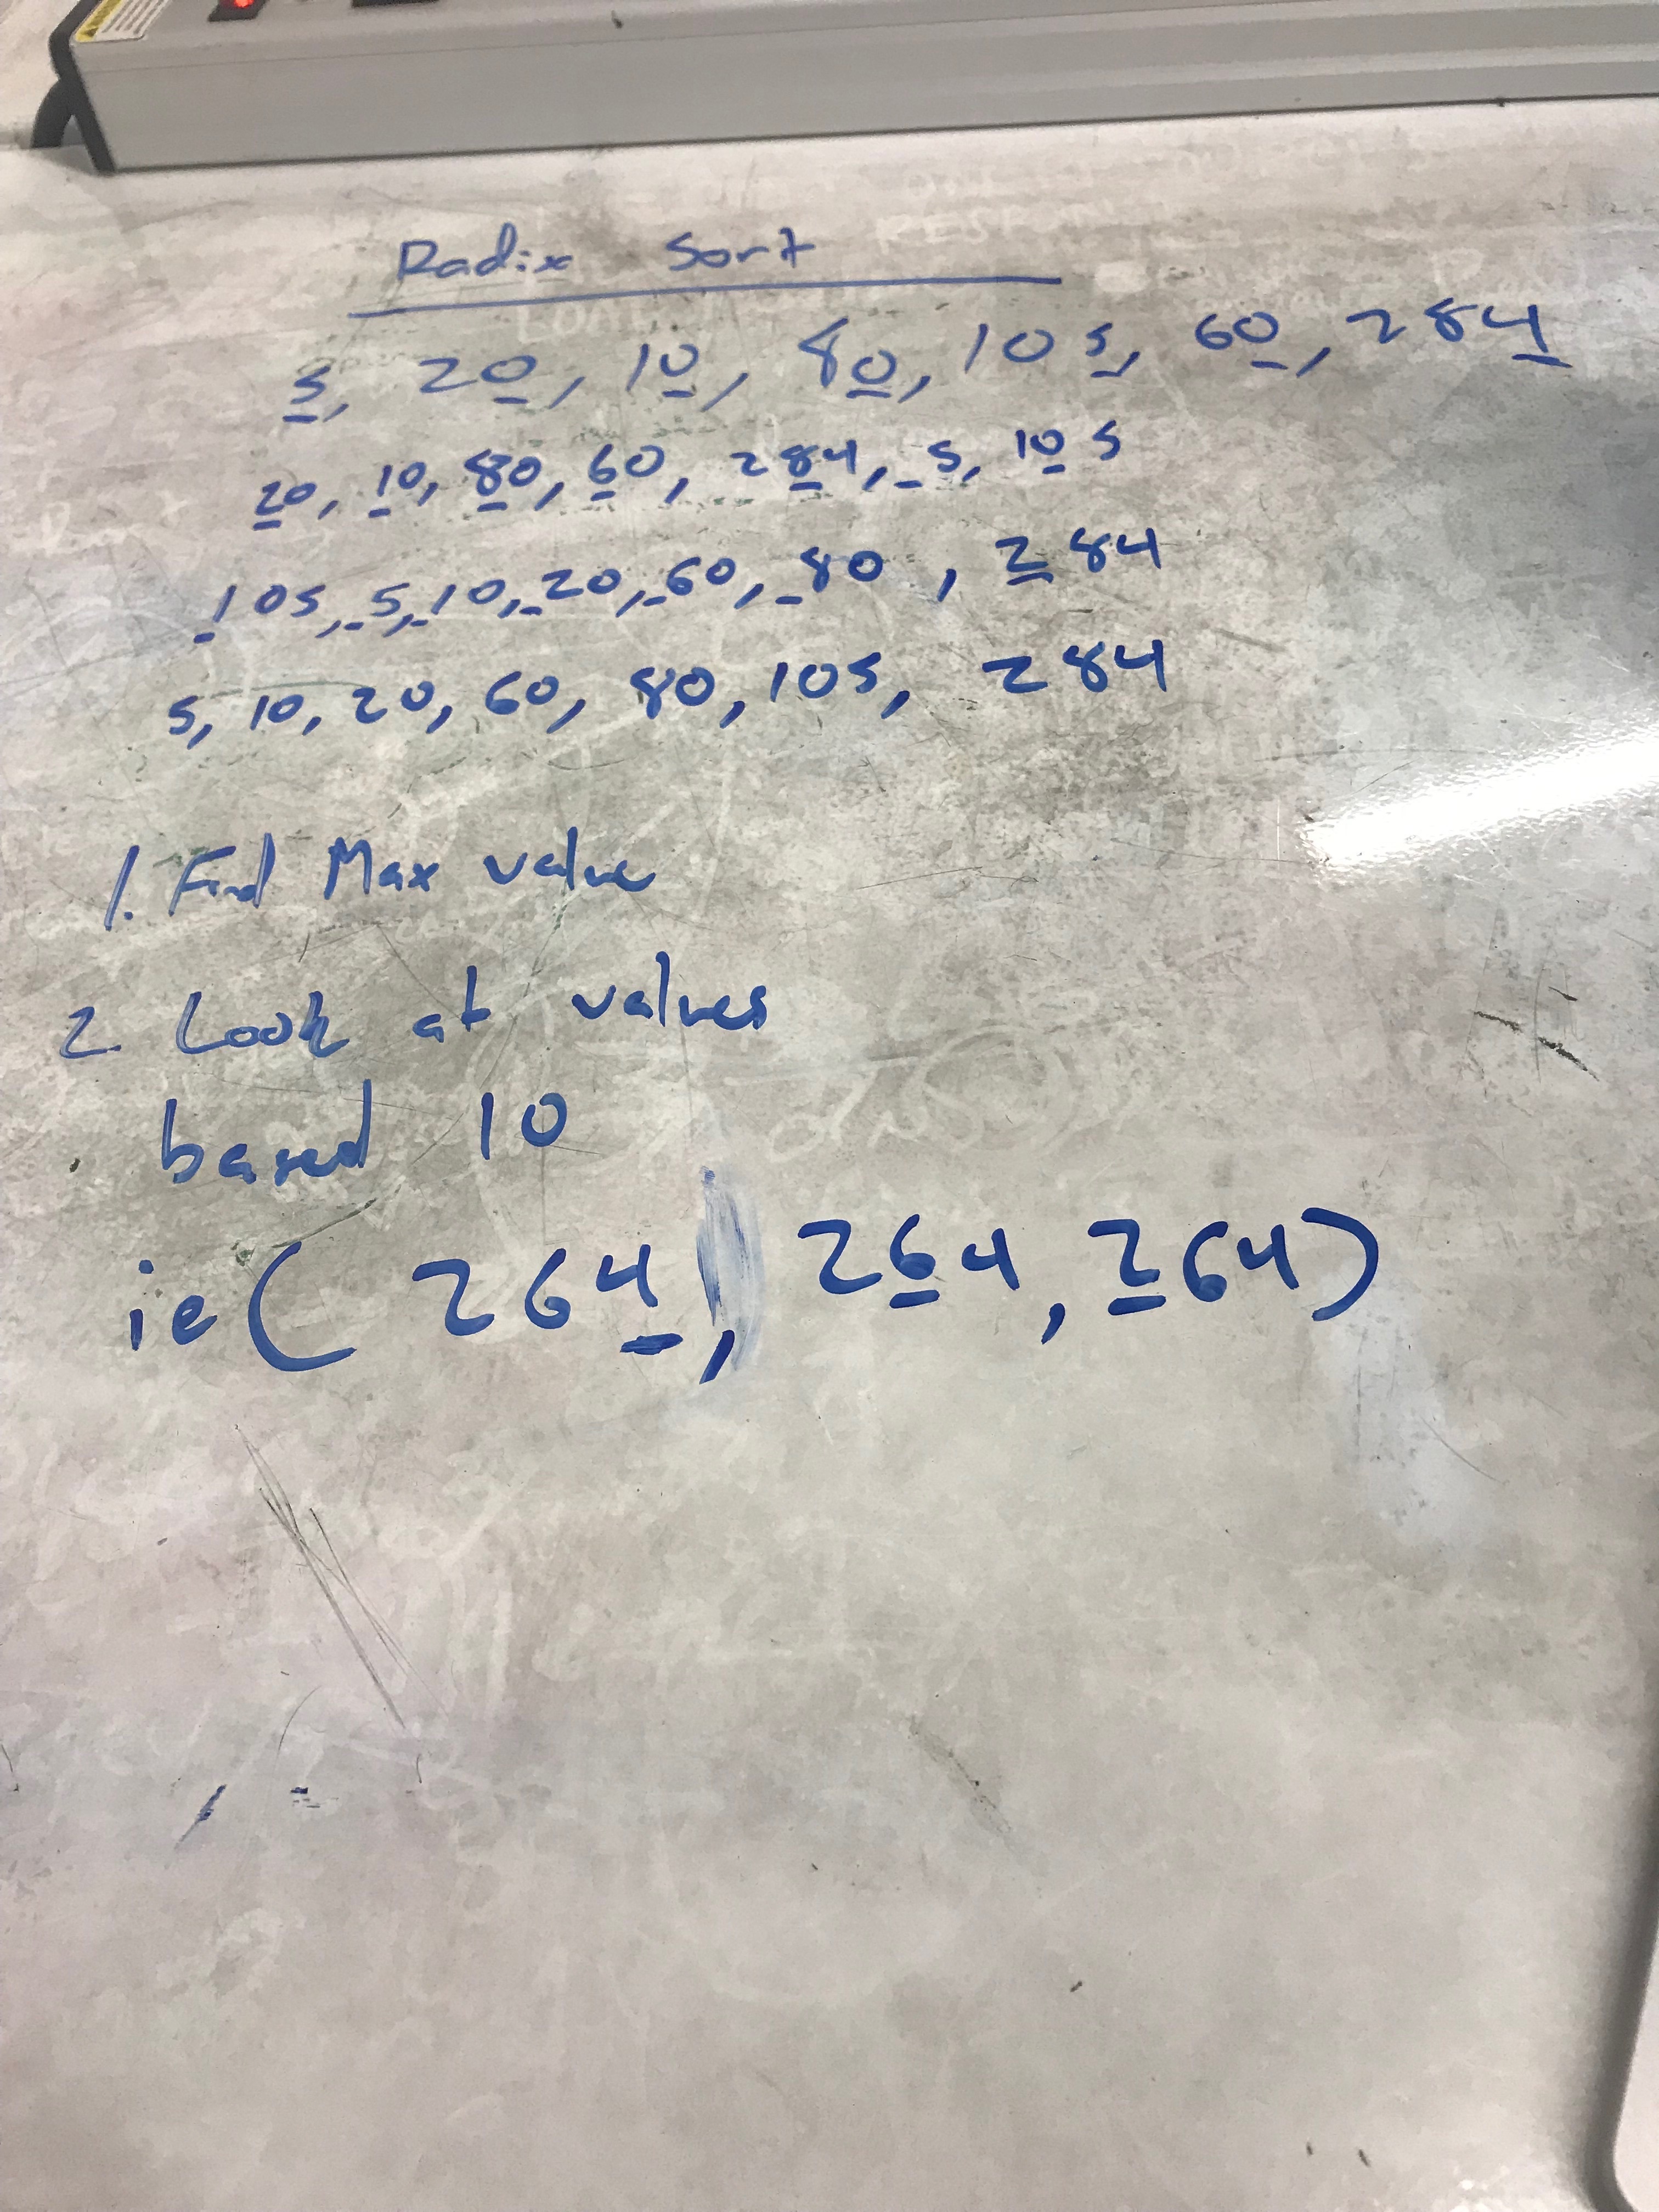 Radix Sort
5, 20, 10, 80, 105, 60, 284
20, 10, 80, 60, 284, 5, 105
105, 5, 10, 20, 60, 80, 284
5, 10, 20, 60, 80, 105, 284
1. Find Max value
2. Look at values
based 10
ie ( 264, 264, 264)